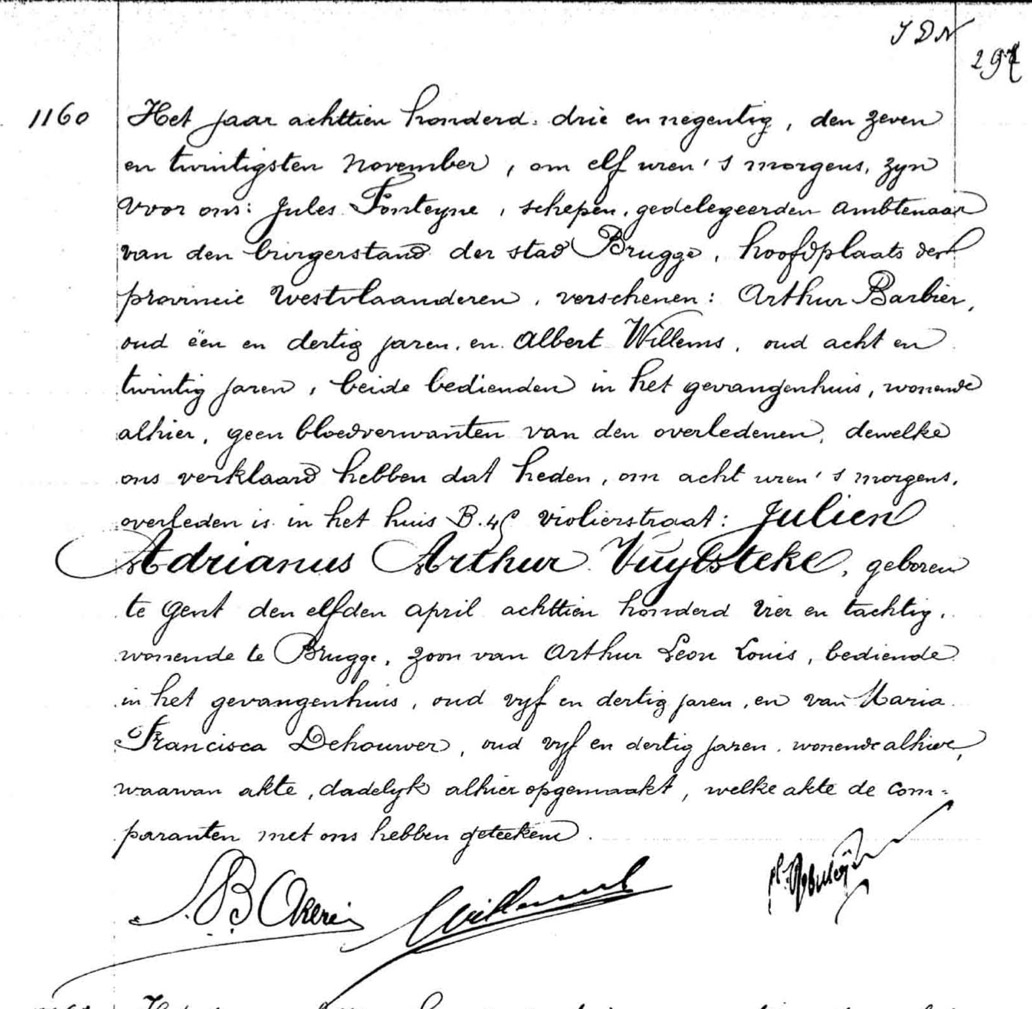 JDN
297
1160 Het jaar achttien honderd drie en negentig, den zeven
en twintigsten November, om elf uren 's morgens, zyn
voor ons: Jules Fonteyne, schepen, gedelegeerden ambtenaar
van den burgerstand der stad Brugge, hoofdplaats der
provincie Westvlaanderen, verschenen: Arthur Barbier,
oud één en dertig jaren, en Albert Willems, oud acht en
twintig jaren, beide bedienden in het gevangenhuis, wonende
alhier, geen bloedverwanten van den overledenen, dewelke
ons verklaard hebben dat heden, om acht uren 's morgens,
overleden is in het huis B. violierstraat: Julien
Adrianus Arthur Vuylsteke, geboren
te Gent den elfden april achttien honderd vier en tachtig,
wonende te Brugge, zoon van Arthur Leon Louis, bediende
in het gevangenhuis, oud vyf en dertig jaren, en van Maria
Francisca Dehouwer, oud vyf en dertig jaren, wonende alhier,
waarvan akte, dadelyk alhier opgemaakt, welke akte de com=
paranten met ons hebben geteekend.
Willems